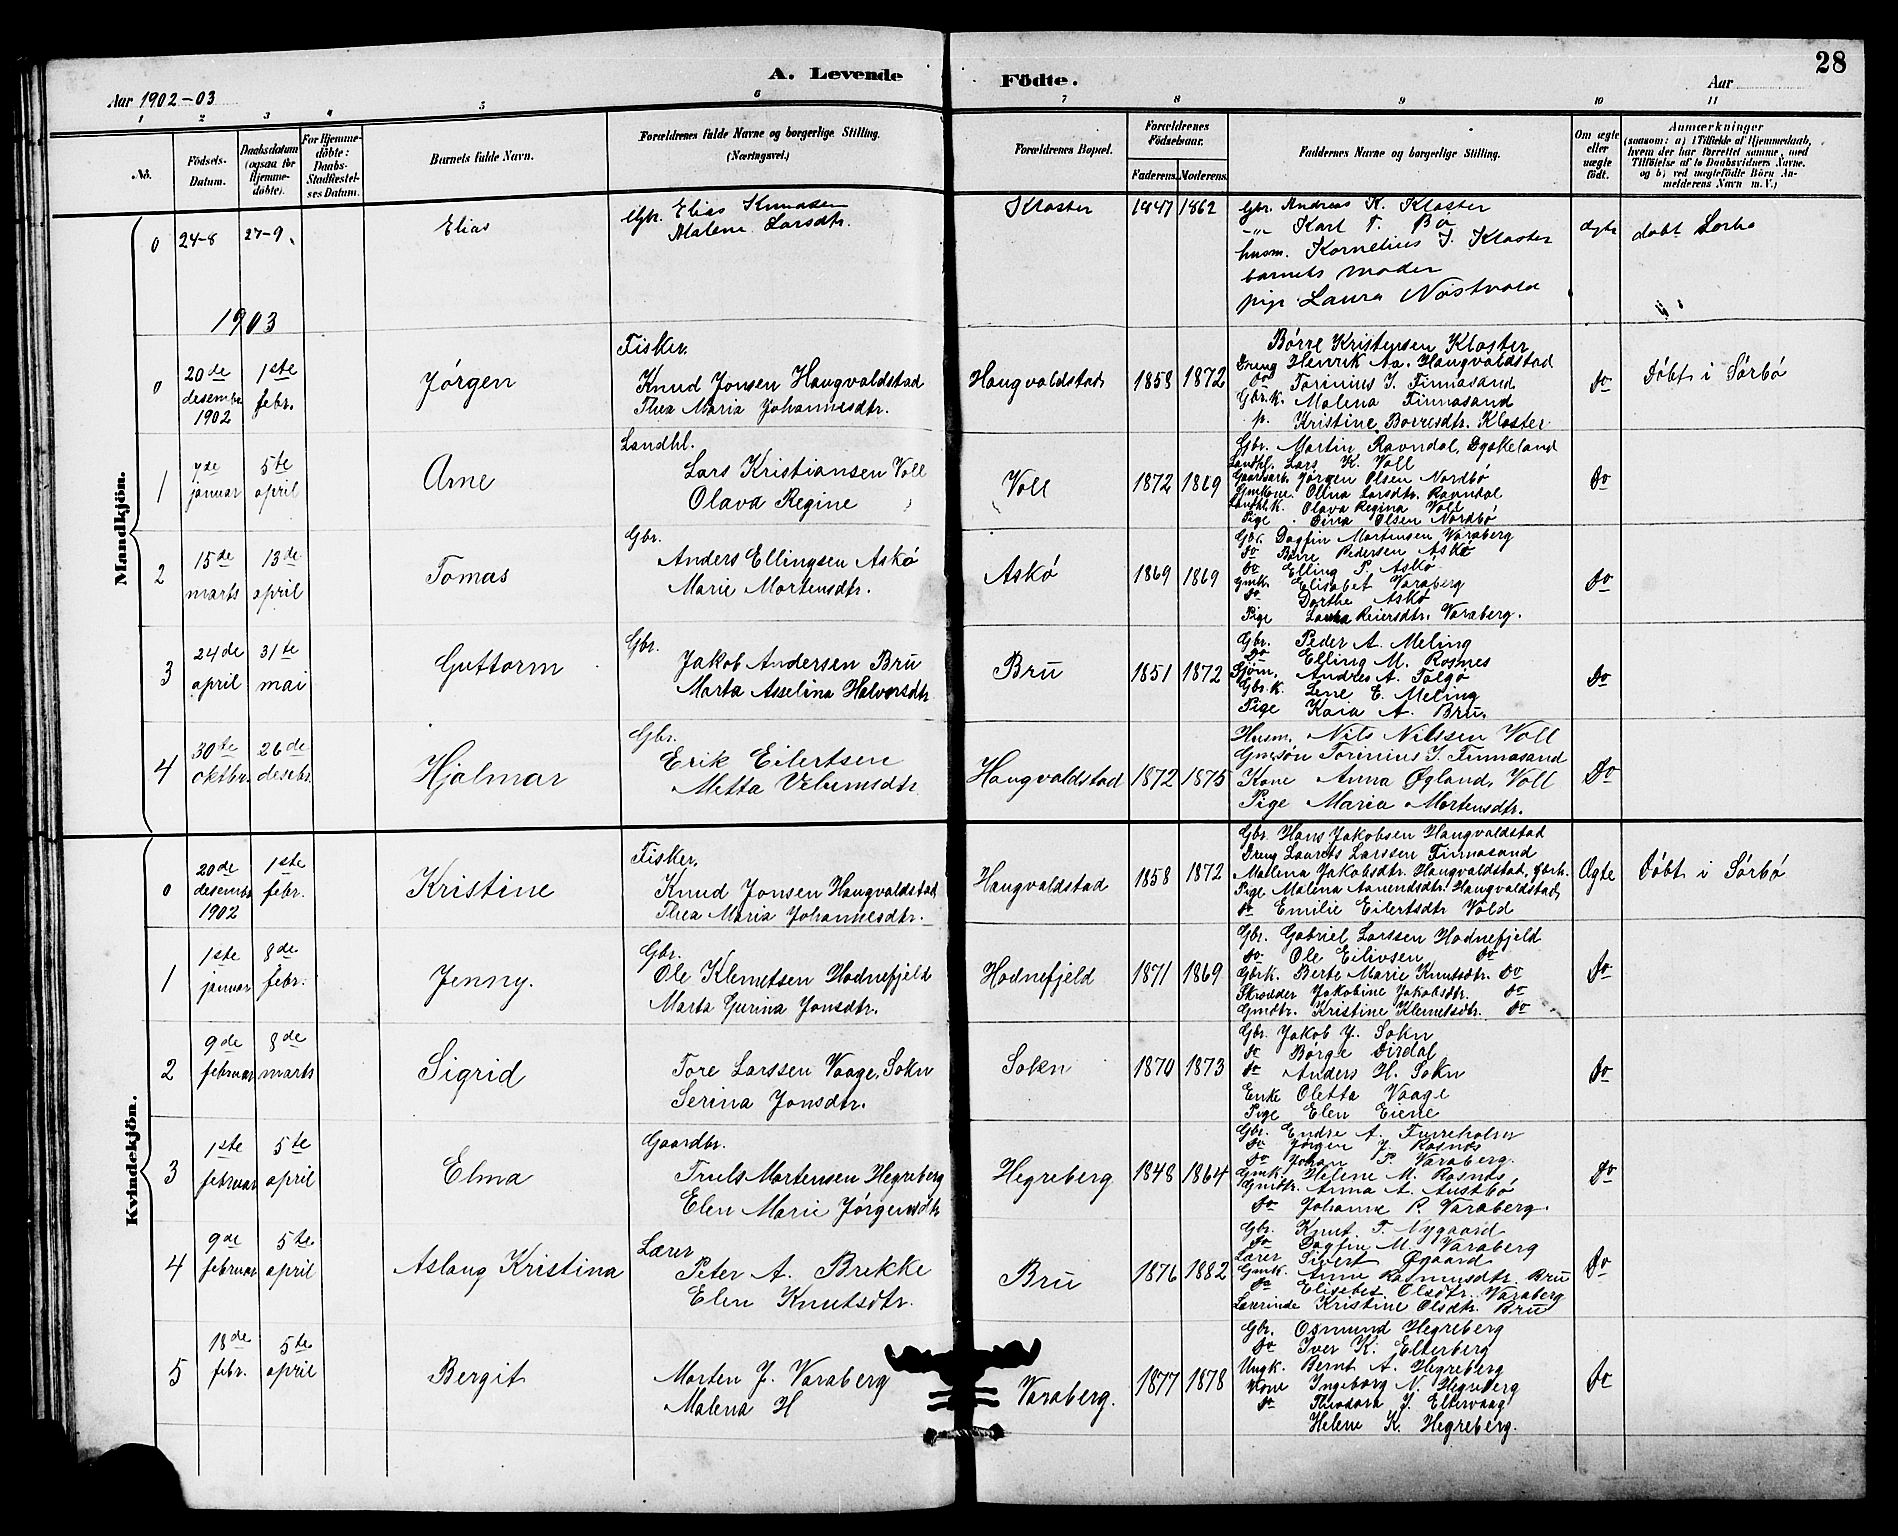 28
A. Levende Födte.
Aar 1902-03
Aar
1 2 3 4 5 6 7 8 9 10 11
No.
Födsels-Datum.
Daabsdatum (ogsaa for Hjemme-döbte).
For Hjemme-döbte: Daabs-Stadfæstel-ses Datum.
Barnets fulde Navn.
Forældrenes fulde Navne og borgerlige Stilling. (Næringsvei.)
Forældrenes Bopæl.
Forældrenes Födselsaar.
Faderens. Moderens.
Faddernes Navne og borgerlige Stilling.
Om ægte eller uægte födt.
Anmærkninger
(saasom: a) i Tilfælde af Hjemmedaab, hvem der har forrettet samme, med Tilföielse af to Daabsvidners Navne. og b) ved uægtefödte Börn An-melderens Navn m. V.)
Mandkjön.
0 24-8 27-9. Elias
Gbr. Elias Knudsen
Malene Larsdtr.
Kloster 1847 1862
Gbr. Andreas K. Kloster
-"- Karl T. Bö
husm. Kornelius J. Kloster
barnets moder
pige Laura Nöstvold
ægte döbt Sörbö
1903
0 20de desember 1902 1ste febr. Jørgen
Fisker.
Knud Jonsen Haugvaldstad
Thea Maria Johannesdtr.
Haugvaldstad 1858 1872
Børre Kristensen Kloster
Dreng Henrik Aa. Haugvaldstad
do Torinius J. Finnasand
Gbr.k. Malena Finnasand
p. Kristine Børresdtr. Kloster
do Døbt i Sørbø
1 7de januar 5te april Arne
Landhl.
Lars Kristiansen Voll
Olava Regine
Voll 1872 1869
Gbr. Martin Ravndal, Dyskeland
Landhl. Lars K. Voll
Gaardarb. Jørgen Olsen Nordbø
Gmkone Olina Larsdtr. Ravndal
Landhl.k. Olava Regina Voll
Pige Dina Olsen Nordbø
do
2 15de marts 13de april Tomas
Gbr.
Anders Ellingsen Askø
Marie Mortensdtr.
Askø 1869 1869
Gbr. Dagfin Mortensen Varaberg
do Børre Pedersen Askø
do Elling P. Askø
Gmk. Elisabet Varaberg
do Dorthe Askø
Pige Laura Reiersdtr. Varaberg.
do
3 24de april 31te mai Guttorm
Gbr.
Jakob Andersen Bru
Marta Asselina Halvorsdtr
Bru 1851 1872
Gbr. Peder A. Meling
Do Elling M. Rosnes
Sjöm. Andres A. Talgø
Gbr.k. Lene E. Meling
Pige Kaia A. Bru.
do
4 30te oktbr. 26de desebr. Hjalmar
Gbr.
Erik Eilertsen
Metta Velumsdtr.
Haugvaldstad 1872 1875
Husm. Nils Nilssen Voll
Gmsøn Torinius J. Finnasand
Kone Anna Øgland, Voll
Pige Maria Mortensdtr.
do
Kvindekjön.
0 20de desembr 1902 1ste febr. Kristine
Fisker.
Knud Jonsen Haugvaldstad
Thea Maria Johannesdtr.
Haugvaldstad 1858 1872
Gbr. Hans Jakobsen Haugvaldstad
Dreng Laurits Larssen Finnasand
Malena Jakobsdtr. Haugvaldstad, gbrk.
Pige Malena Aamundsdtr. Haugvaldstad,
do Emilie Eilertsdtr Vold
Ægte Døbt i Sørbø
1 1ste januar 8de febr. Jenny.
Gbr.
Ole Klemetsen Hodnefjeld
Marta Gurina Jonsdtr.
Hodnefjeld 1871 1869
Gbr. Gabriel Larssen Hodnefjeld
do Ole Eilivsen do
Gbrk. Berte Marie Knutsdtr. do
Skrædder Jakobine Jakobsdtr. do
Gmdtr. Kristine Klemetsdtr. do
do
2 9de februar 8de marts Sigrid
Tore Larssen Vaage, Sokn
Serina Jonsdtr.
Sokn 1870 1873
Gbr. Jakob J. Sokn
do Børge Dirdal
do Anders H. Sokn
Enke Oletta Vaage
Pige Elen Eiene
do
3 1ste februar 5te april Elma
Gaardbr.
Truls Mortensen Hegreberg
Elen Marie Jørgensdtr
Hegreberg 1848 1864
Gbr. Endre A. Furreholm
do Jørgen J. Rosnes
do Johan P. Varaberg.
Gmk. Helene M. Rosnes
Gmdtr. Anna A. Austbø
do Johanne R. Varaberg.
do
4 9de februar 5te april Aslaug Kristina
Lærer
Peter A. Brekke
Elen Knutsdtr.
Bru 1876 1882
Gbr. Knut T. Nygaard
do Dagfin M. Varaberg
Lærer Sivert Øgaard
Gmk. Anne Rasmusdtr. Bru
do Elisebet Olsdtr. Varaberg
Lærerinde Kristine Olsdtr. Bru
do
5 18de febr. 5te april Bergit
Morten J. Varaberg
Malena H
Varaberg. 1877 1878
Gbr. Osmund Hegreberg
do Iver K. Elterberg
Ungk. Bernt A. Hegreberg
Kone Ingeborg N. Hegreberg
do Theodora J. Eltervaag
Helene K. Hegreberg.
do